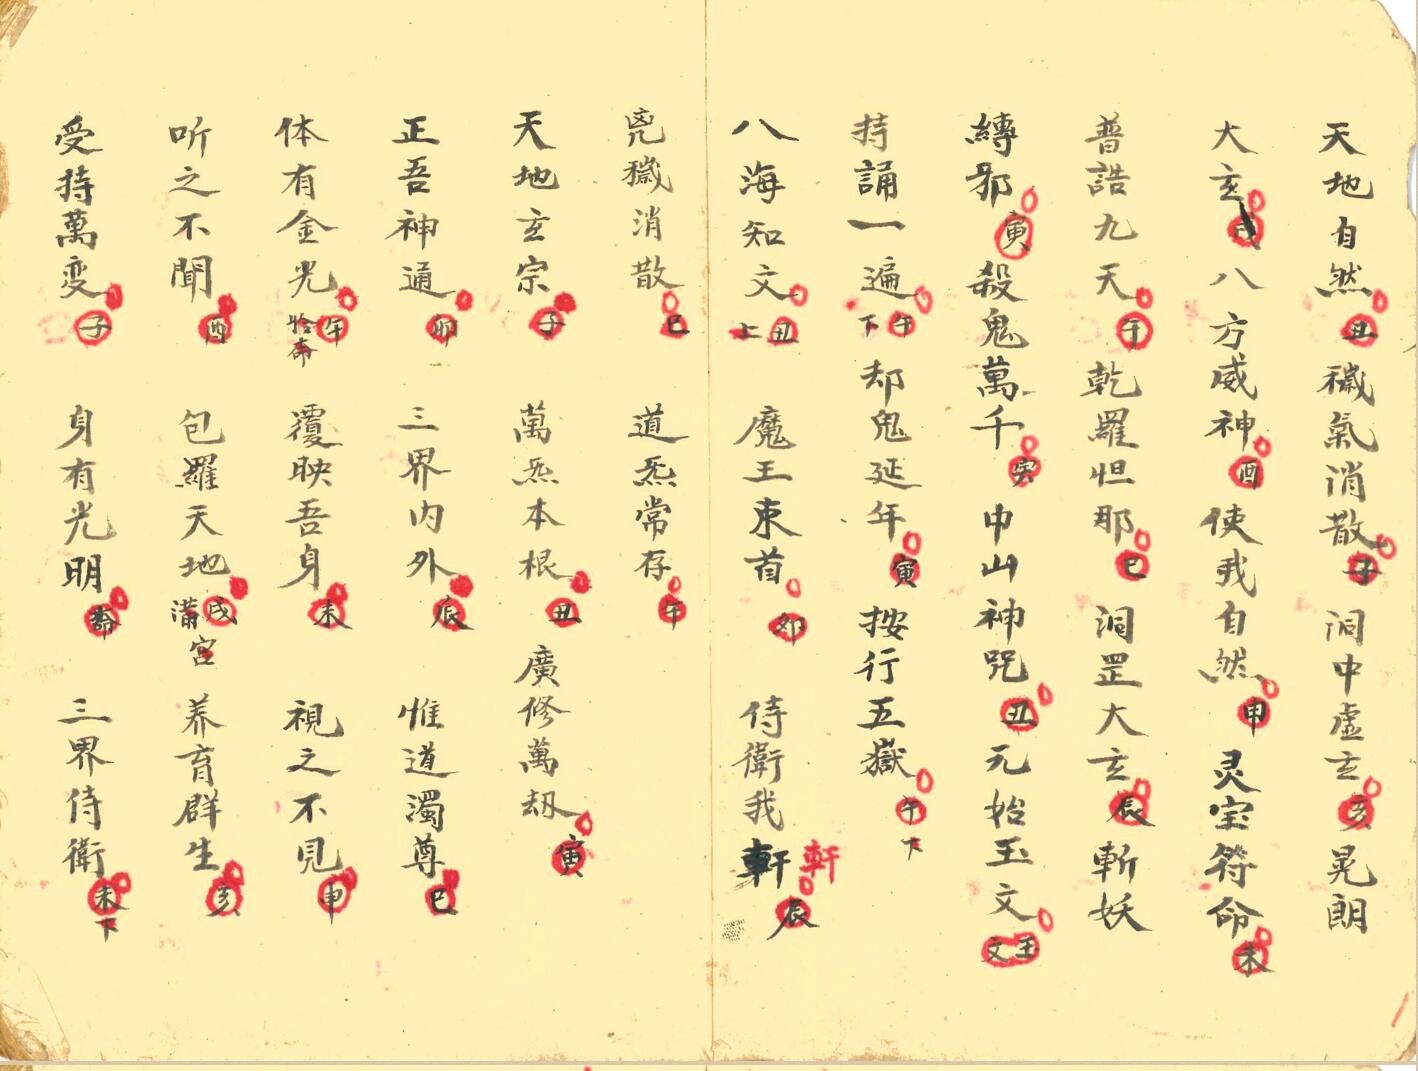 天地自然丑穢氣消散子洞中虛玄亥晃朗
大玄戌八方威神酉使我自然申灵宝符命未
普誥九天午乾羅怛那巳洞罡大玄辰斬妖
縛邪寅殺鬼萬千寅中山神咒丑元始玉文玉文
持誦一遍午下却鬼延年寅按行五嶽午下
八海知文丑上魔王束首卯侍衛我軒軒辰
兇穢消散巳道炁常存午
天地玄宗子萬炁本根丑廣修萬刼寅
正吾神通卯三界内外辰惟道濁尊巳
体有金光午覆映吾身未視之不見申
听之不聞酉包羅天地戌满宫养育群生亥
受持萬变子身有光明斋三界侍衛未下